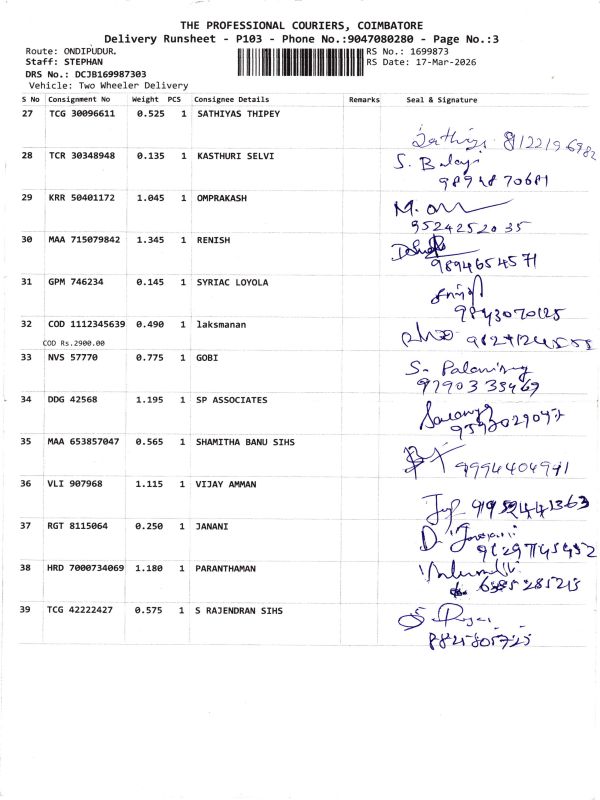 THE PROFESSIONAL COURIERS, COIMBATORE
Delivery Runsheet - P103 - Phone No.:9047080280 - Page No.:3
Route: ONDIPUDUR, RS No.: 1699873
Staff: STEPHAN RS Date: 17-Mar-2026
DRS No.: DCJB169987303
Vehicle: Two Wheeler Delivery
S No Consignment No Weight PCS Consignee Details Remarks Seal & Signature
27 TCG 30096611 0.525 1 SATHIYAS THIPEY
28 TCR 30348948 0.135 1 KASTHURI SELVI S. Balaji
29 KRR 50401172 1.045 1 OMPRAKASH
9524252035
30 MAA 715079842 1.345 1 RENISH
9894654571
31 GPM 746234 0.145 1 SYRIAC LOYOLA
9843070125
32 COD 1112345639 0.490 1 laksmanan
COD Rs.2900.00
33 NVS 57770 0.775 1 GOBI S.
34 DDG 42568 1.195 1 SP ASSOCIATES
35 MAA 653857047 0.565 1 SHAMITHA BANU SIHS
9994404941
36 VLI 907968 1.115 1 VIJAY AMMAN
37 RGT 8115064 0.250 1 JANANI D.
38 HRD 7000734069 1.180 1 PARANTHAMAN
39 TCG 42222427 0.575 1 S RAJENDRAN SIHS
8825805725